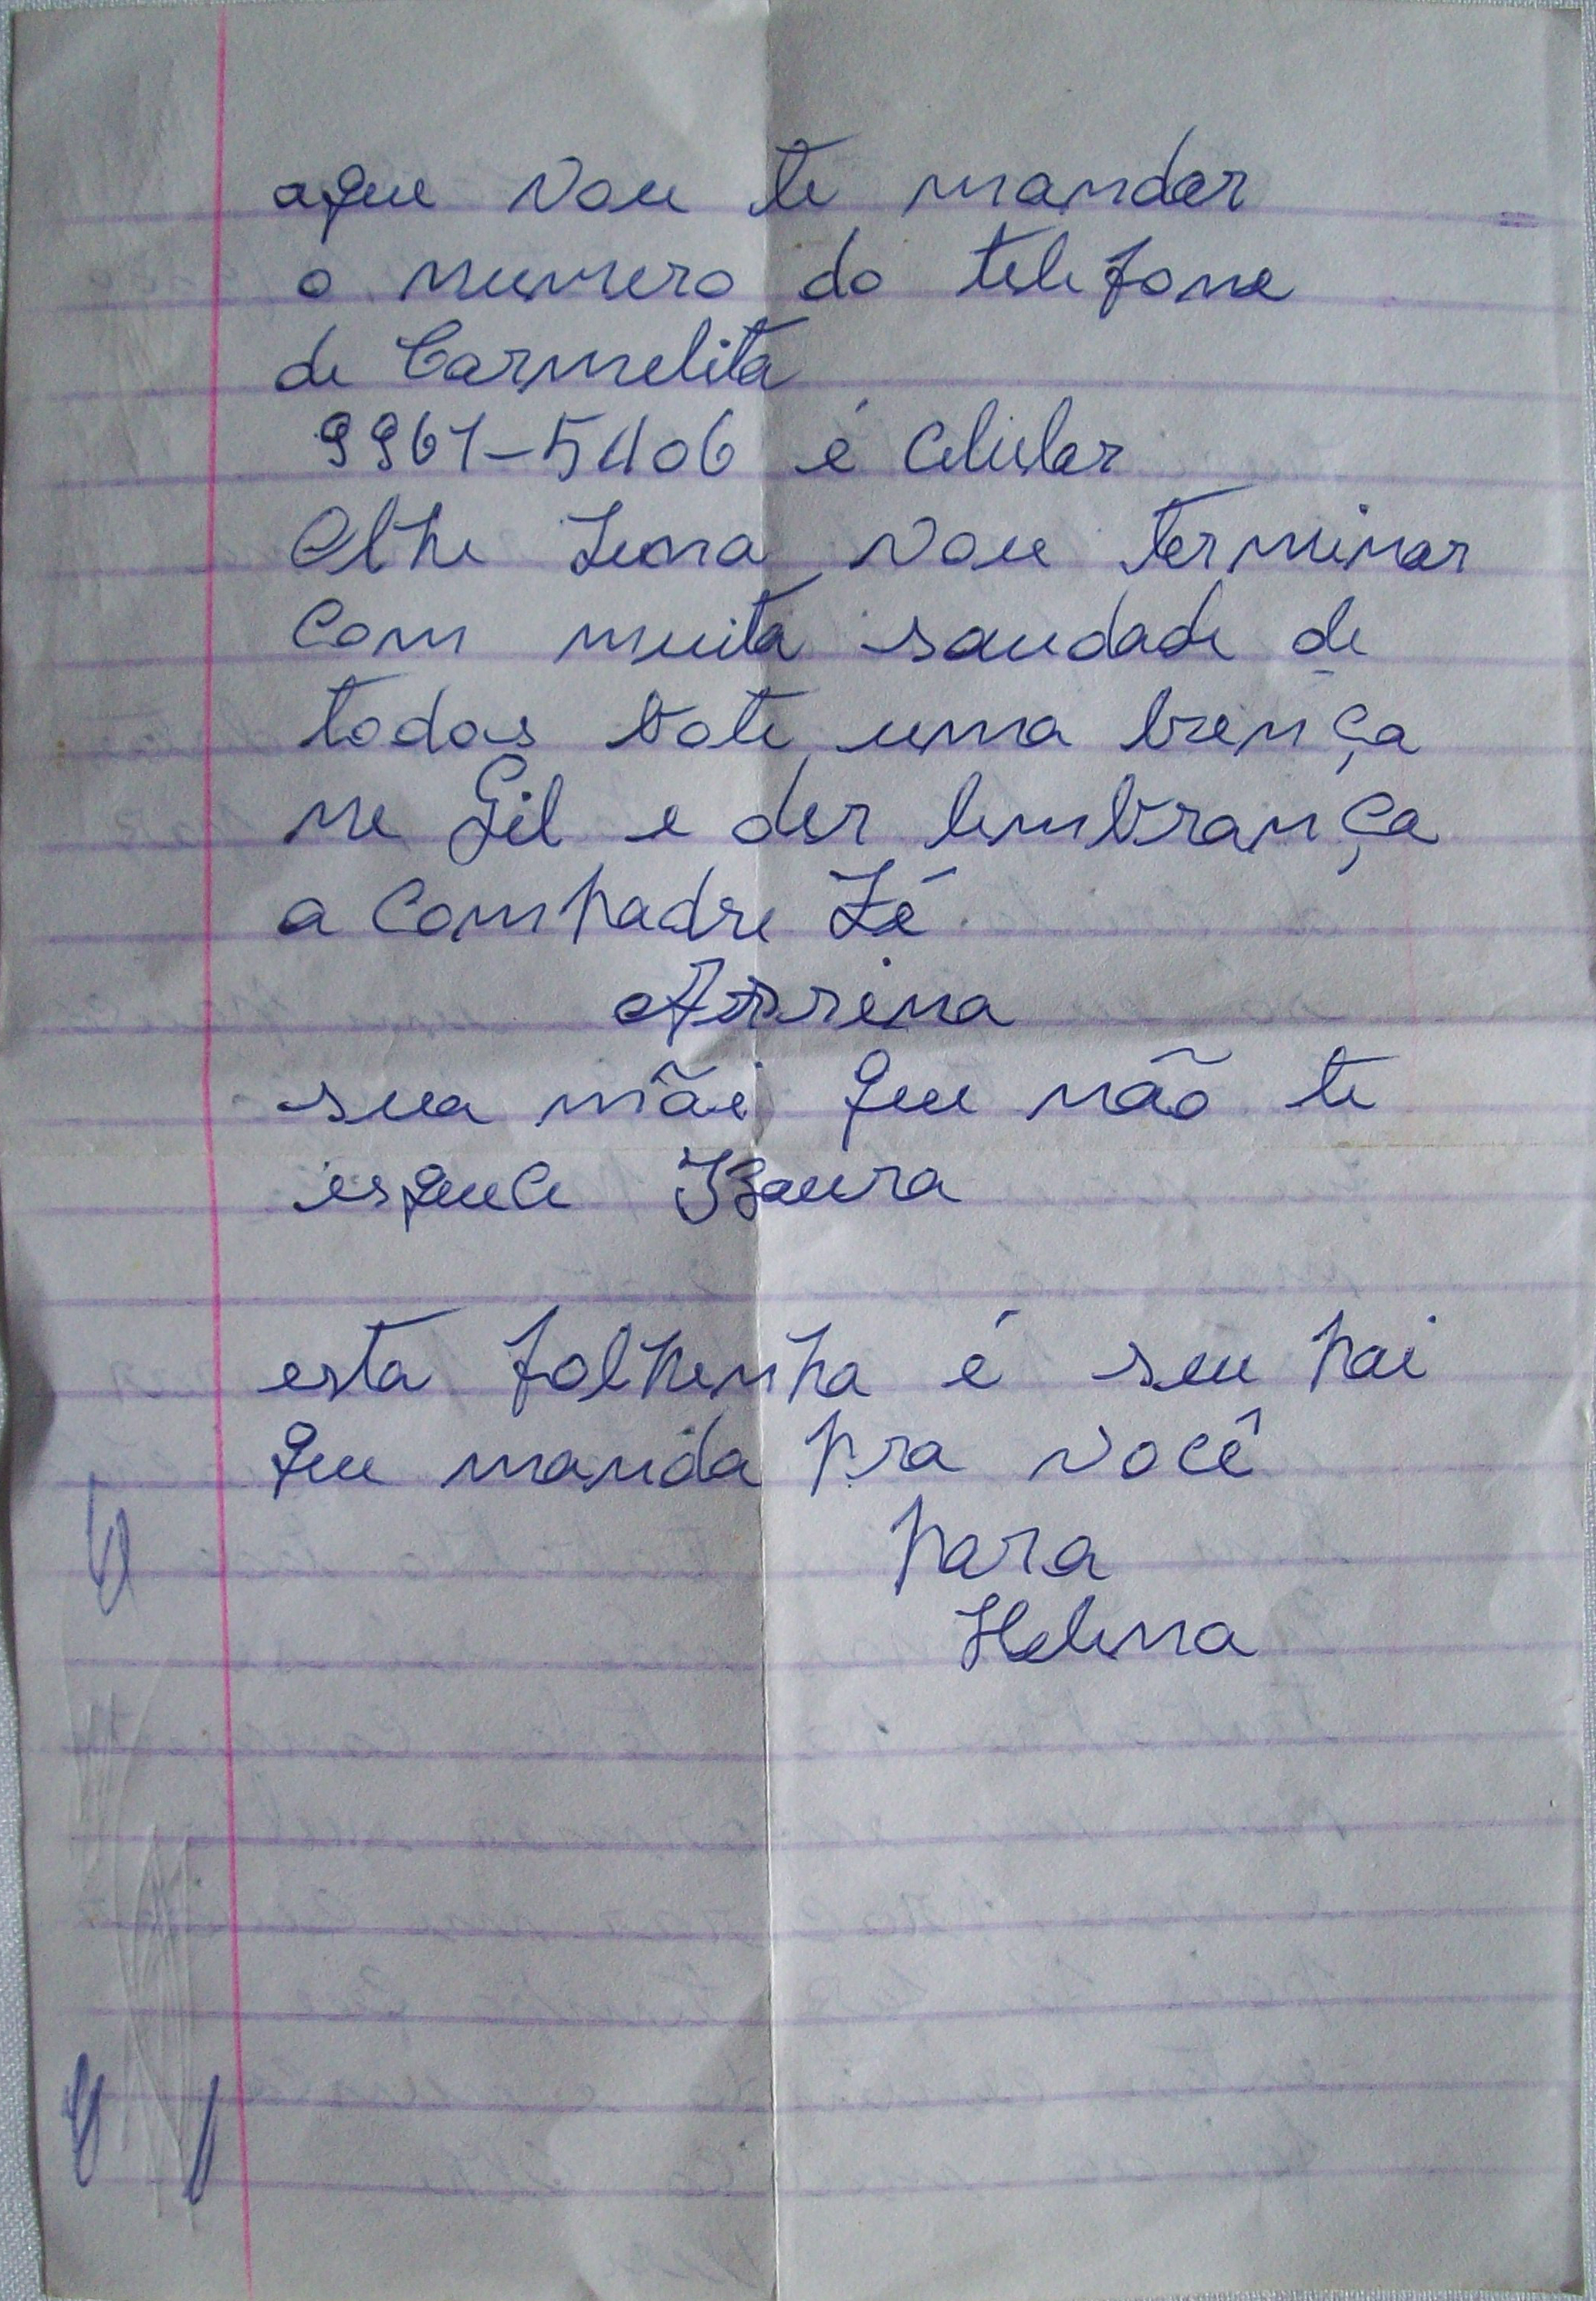 aque vou te mandar
o numero do telefone
de Carmelita
9961-5406 é Celular
Olhe Lena vou terminar
Com muita saudade de
todos bote uma bença
ne Gil e der lembrança
a Compadre Zé
Assina
sua mãe que não te
esquece Isaura
esta folhenha é seu pai
que manda pra você
para
Helena